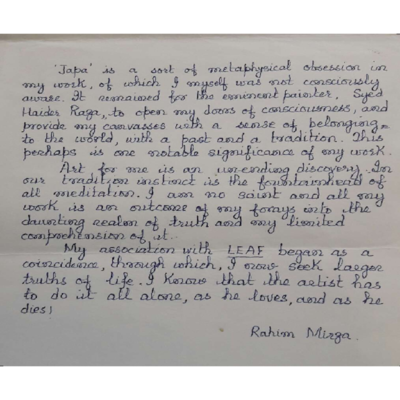 'Japa' is a sort of metaphysical obsession in
my work, of which I myself was not consciously
aware. It remained for the eminent painter, Syed
Haider Raza, to open my doors of consciousness, and
provide my canvasses with a sense of belonging
to the world, with a past and a tradition. This
perhaps is one notable significance of my work.
Art for me is an un-ending discovery. In
our tradition instinct is the fountainhead of
all meditation. I am no saint and all my
work is an outcome of my forays into the
daunting realm of truth and my limited
comprehension of it.
My association with LEAF began as a
coincidence, through which, I now seek larger
truths of life. I know that the artist has
to do it all alone, as he loves, and as he
dies!
Rahim Mirza.